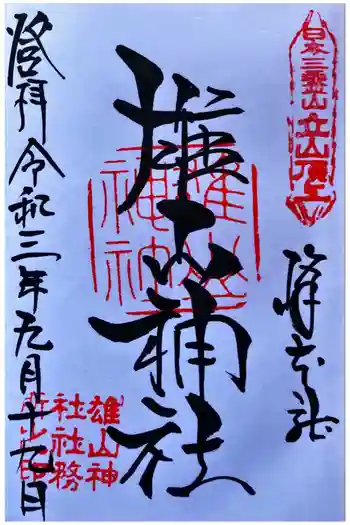 日本三霊山立山頂上
峰本社
雄山神社
雄山神社
登拝 令和三年九月十九日
雄山神
社社務